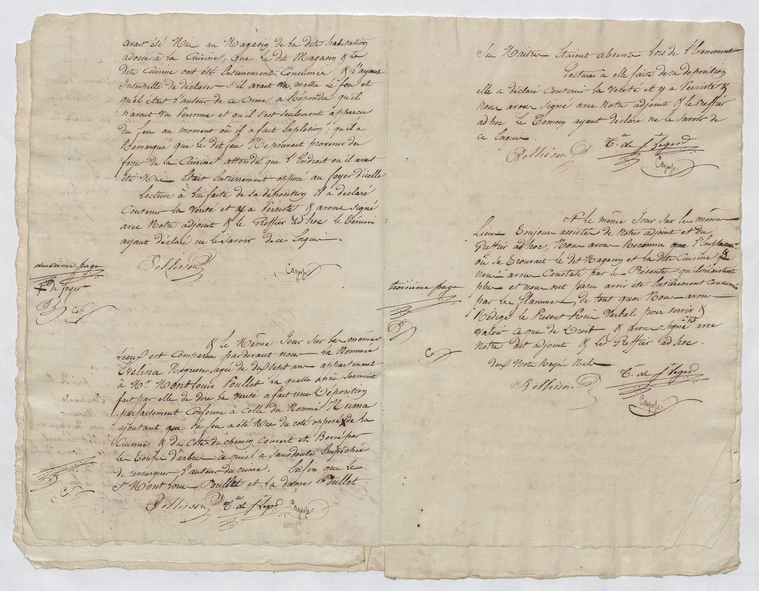 avait été Mis au Magasin de la dite habitation
adossé a la Cuisine, que le dit Magasin & la
dite Cuisine ont été Entierement Consumés & l'ayant
Interpellé de déclarer s'il avait vu mettre le feu et
quel était l'auteur de ce Crime, a Répondu qu'il
n'avait vu Personne et qu'il s'est seulement apperçu
du feu au moment où il a fait Explotion; qu'il a
Remarqué que le dit feu Ne pouvait provenir du
foyer de la Cuisine attendu que l'Endroit ou il avait
été Mis Etait Entierrement opposé au foyer d'icelle
Lecture à lui faite de sa déposition il a déclaré
Contenir la Vérité et y a Persisté & avons signé
avec Notre adjoint & le Greffier ad hoc le Témoin
ayant déclaré ne le Savoir de ce Enquis.
Pellisson
Cazale
deuxième page
& le Même Jour Sur les mêmes
lieux est Comparu pardevant nous la Nommée
Evelina Negresse agée de dix sept ans appartenant
à Mr. Montlouis Poullet la quelle après serment
fait par elle de dire la vérité a fait une Déposition
parfaitement Conforme à Celle du Nommé Numa
ajoutant que le feu a été Mis du coté opposé de la
Cuisine & du Coté du chemin Couvert et Borné par
de remarquer l'auteur du crime. Enfin que le
Sr. Montlouis Poullet et la dame Poullet
Pellisson T. de St Leger Cazale
Ses Maitres Etaient absens lors de l'Evenement
Lecture à elle faite de sa déposition
elle a déclaré Contenir la Vérité et y a Persisté &
Nous avons Signé avec Notre adjoint & le Greffier
ad hoc le Témoin ayant déclaré ne le Savoir de
ce Enquis
Pellisson T. de St Leger
Cazale
& le même Jour Sur le même
Lieu Toujour assisté de Notre adjoint et du
Greffier ad hoc, Nous avons Reconnu que l'Emplacement
où se Trouvait le dit Magasin et la dite Cuisine
nous avons Constaté par le Présent qu'ils n'existent
plus et nous ont paru avoir été Entierement Consumés
par les flammes, de tout quoi Nous avons
Rédigé le Présent Procès Verbal pour servir &
valoir ce que de Droit & avons Signé avec
Notre dit adjoint & le Greffier ad hoc.
deux Mots Rayés Nuls
Pellisson T. de St Leger
Cazale
troisième page